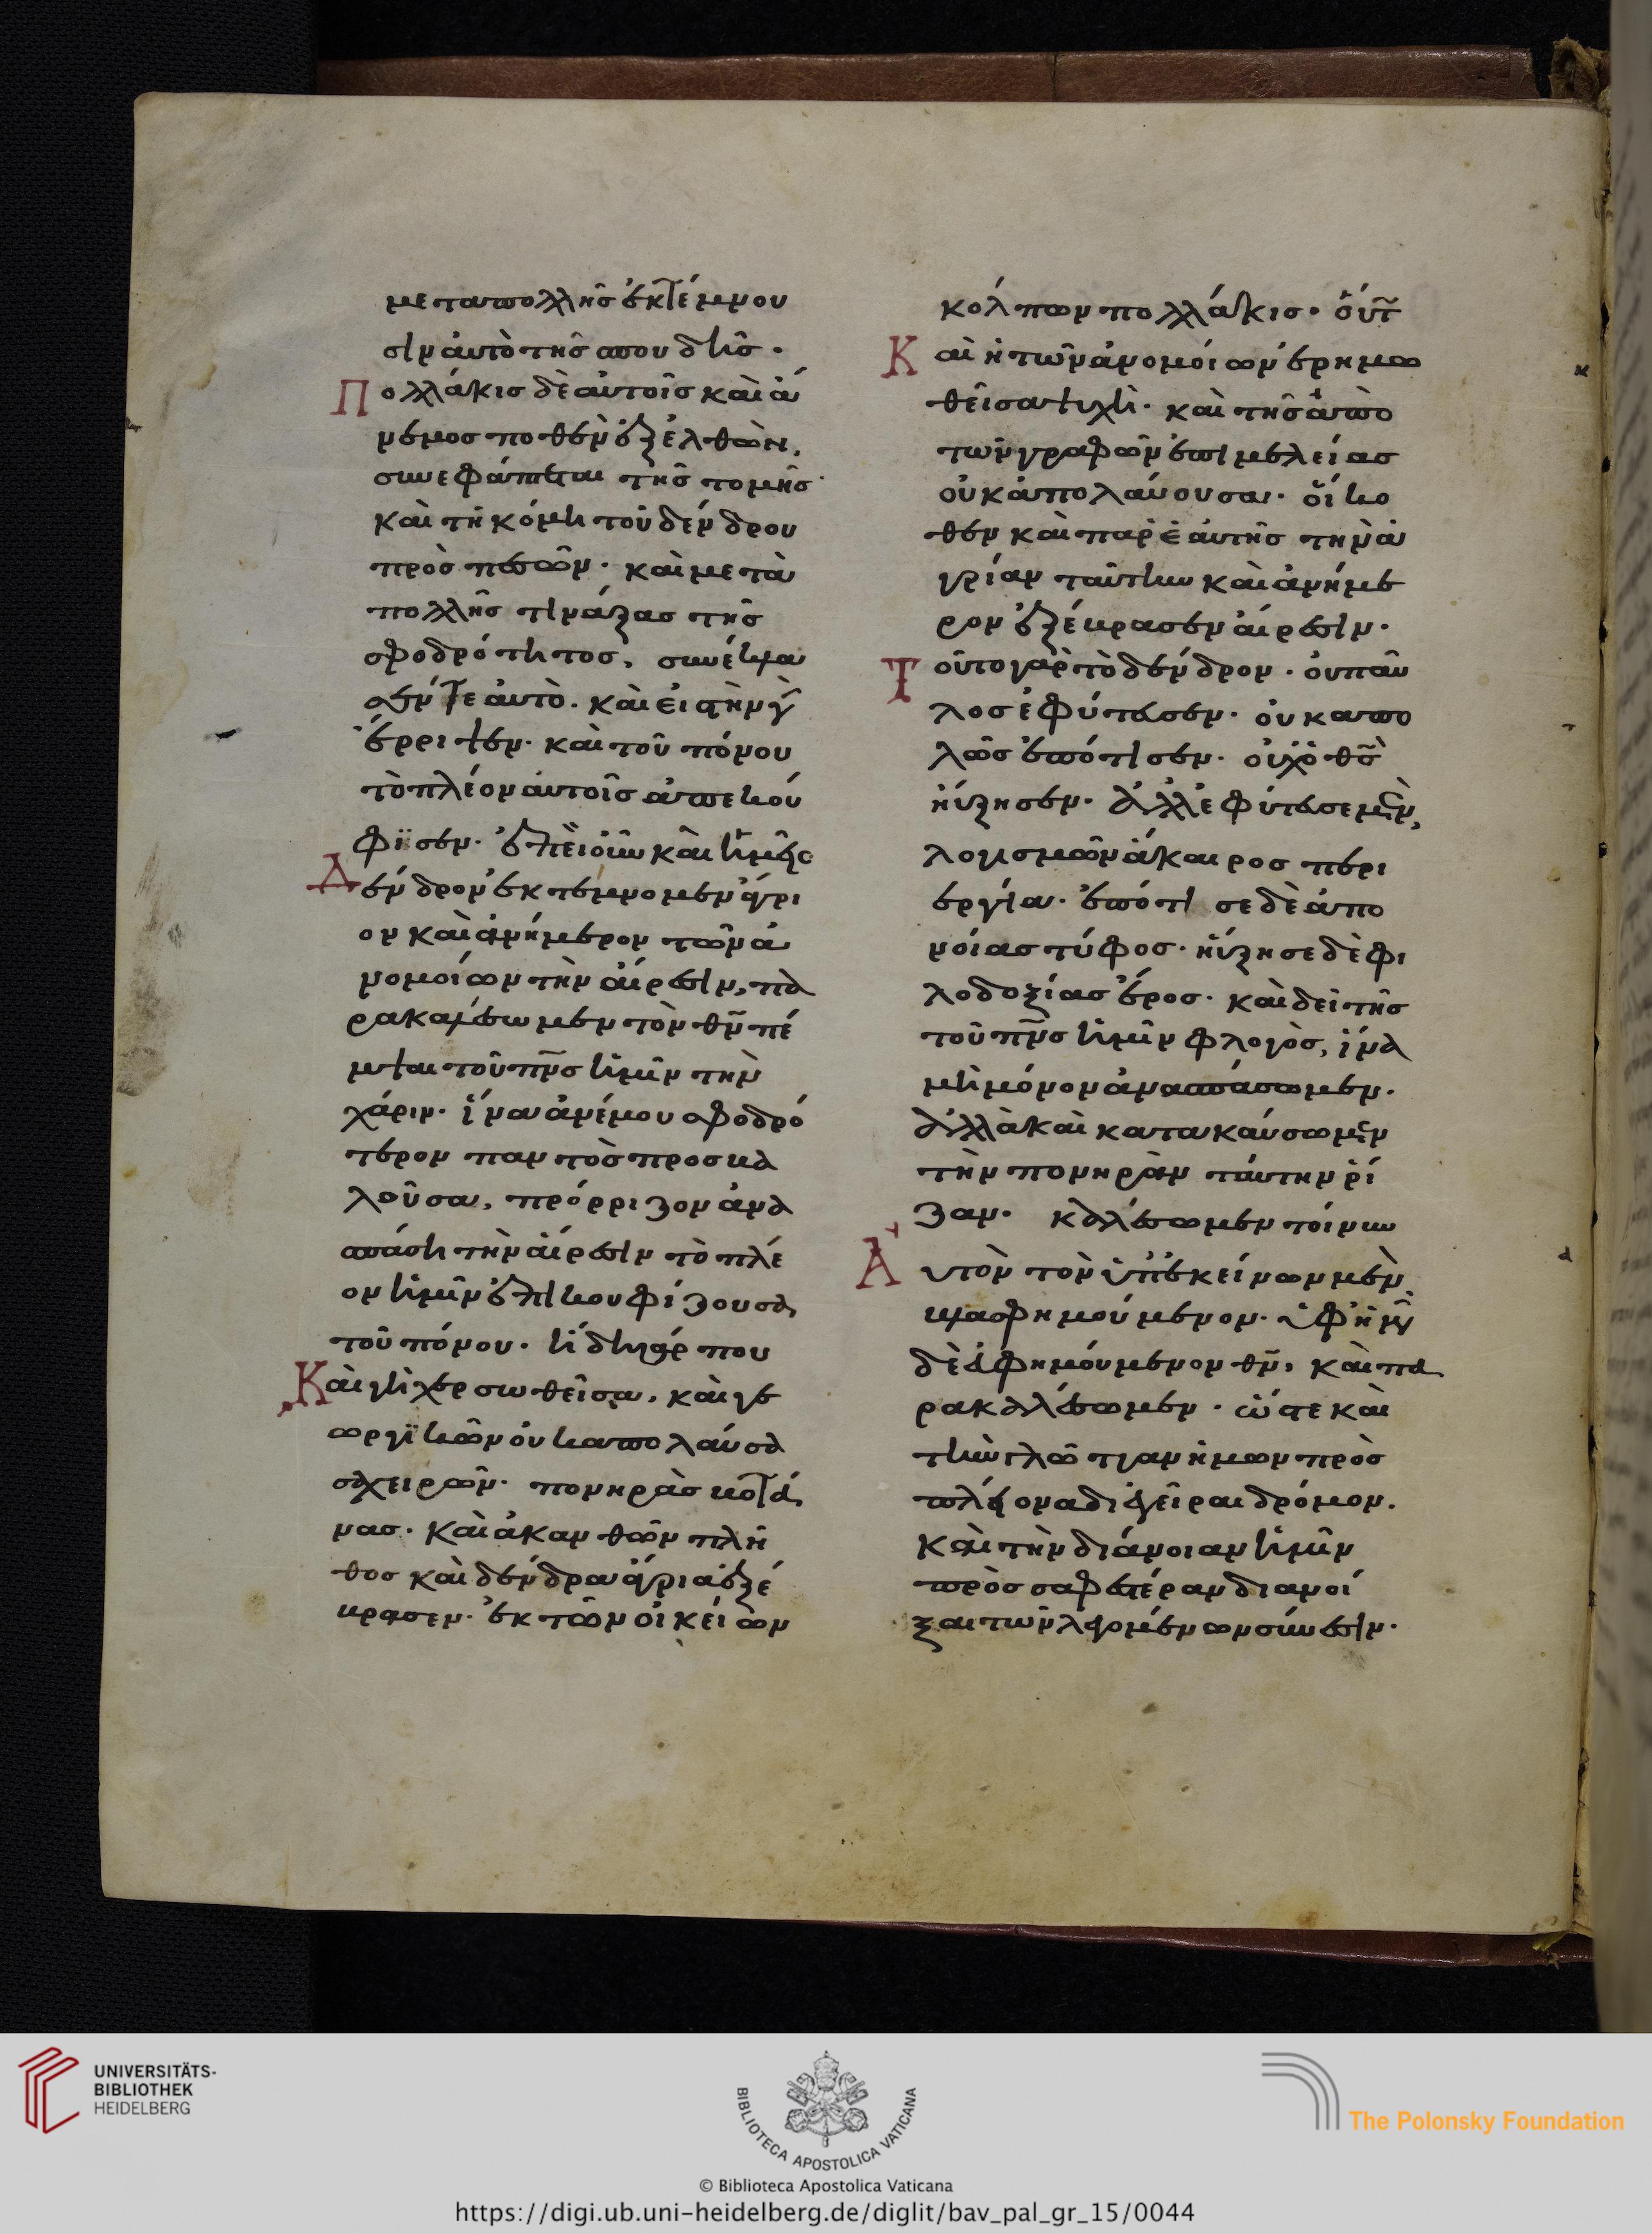 μετα πολλῆς ἐκτέμνου
σιν ἀυτὸ τῆς σπουδῆς.
Πολλάκις δὲ αὐτοῖς καὶ ἄ
νεμος ποθὲν ἐξελθὼν,
συνεφάπτεται τῆς τομῆς·
καὶ τῆ κόμη τοῦ δένδρου
προσπεσὼν· καὶ μετὰ
πολλῆς τινάξας τῆς
σφοδρότητος, συνέτρι
ψέν τε ἀυτὸ. καὶ εἰς τὴν γῆν
ἔρριψεν· καὶ τοῦ πόνου
τὸ πλέον ἀυτοῖς ἀπεκού
φϊσεν· ἐπεὶ οὖν καὶ ἡμεῖς
Δένδρον ἐκτέμνομεν ἄγρι
ον καὶ ἀνήμερον τῶν ἀ
νομοίων τὴν αἵρεσιν, πα
ρακαλέσωμεν τὸν θν̅ πέ
μψαι τοῦ πνς̅ ἡμῖν τὴν
χάριν· ἵνα ἀνέμου σφοδρό
τερον παντὸς προσβα
λοῦσα, πρόρριζον ἀνα
σπάση τὴν αἵρεσιν τὸ πλέ
ον ἡμῖν ἐπικουφίζουσα
τοῦ πόνου. ἤδη γάρ που
Καὶ γῆ χερσωθεῖσα, καὶ γε
ωργϊκῶν οὐκ ἀπολαύσα
σα χειρῶν· πονηρὰς βοτά
νας. καὶ ἀκανθῶν πλῆ
θος καὶ δένδρα ἄγρια ἐξέ
βρασεν· ἐκ τῶν οἰκείων
κόλπων πολλάκις. οὕτω
Καὶ ἡ τῶν ἀνομοίων ἐρημω
θεῖσα ψυχὴ· καὶ τῆς ἀπὸ
τῶν γραφῶν ἐπιμελείας
οὐκ ἀπολάυουσα· οἴκο
θεν καὶ παρ' ἑαυτῆς τὴν ἀ
γρίαν ταύτην καὶ ἀνήμε
ρον ἐξέβρασεν αἵρεσιν·
Τοῦτο γὰρ τὸ δένδρον. οὐ παῦ
λος ἐφύτευσεν· οὐκ ἀπο
λλῶς ἐπότισεν· οὐχ ὁ θς̅
ηὔξησεν· ἀλλ' ἐφύτευσε μὲν,
λογισμῶν ἄκαιρος περι
εργία· ἐπότισε δὲ ἀπο
νοίας τύφος· ηὔξησε δὲ φι
λοδοξίας ἔρως· καὶ δεῖ τῆς
τοῦ πνς̅ ἡμῖν φλογὸς, ἵνα
μὴ μόνον ἀνασπάσωμεν.
ἀλλὰ καὶ κατακαύσωμεν
τὴν πονηρὰν ταύτην ῥί
ζαν. καλέσωμεν τοίνυν
Αὐτὸν τὸν ὑπ' ἐκείνων μὲν
βλασφημούμενον· ὑφ' ἡμῶν
δὲ ἐυφημούμενον θν̅, καὶ πα
ρακαλέσωμεν. ὥστε καὶ
τὴν γλῶτταν ἡμῶν πρὸς
πλείονα διεγεῖραι δρόμον.
καὶ τὴν διάνοιαν ἡμῖν
πρὸς σαφεστέραν διανοῖ
ξαι τῶν λεγομένων σύνεσιν.
UNIVERSITÄTS-
BIBLIOTHEK
HEIDELBERG
BIBLIOTECA APOSTOLICA VATICANA
The Polonsky Foundation
© Biblioteca Apostolica Vaticana
https://digi.ub.uni-heidelberg.de/diglit/bav_pal_gr_15/0044